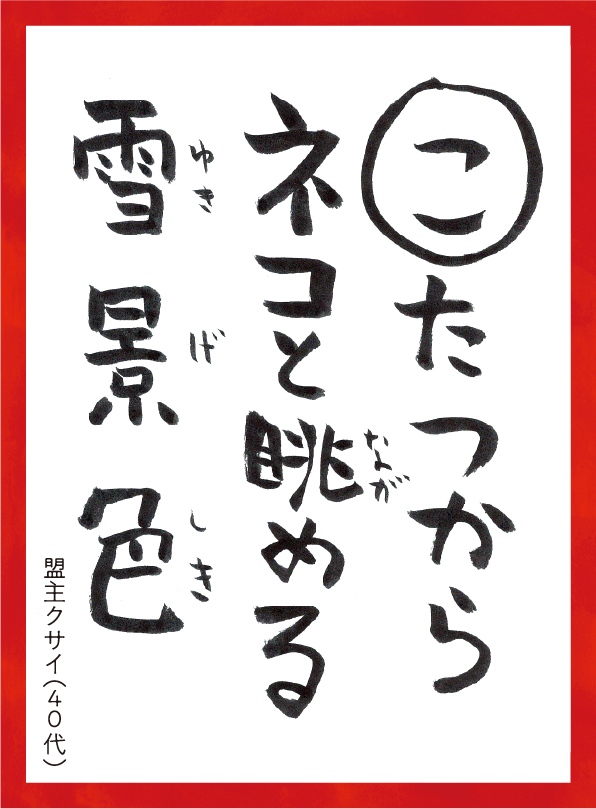 こたつから
ネコと眺める
なが
雪景色
ゆきげしき
盟主クサイ(40代)